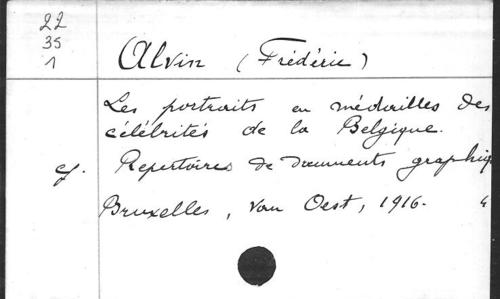 22
35
1
Alvin (Frédéric)
Les portraits en médailles des
célébrités de la Belgique.
cf. Repertoires de documents graphiq
Bruxelles, van Oest, 1916. 4